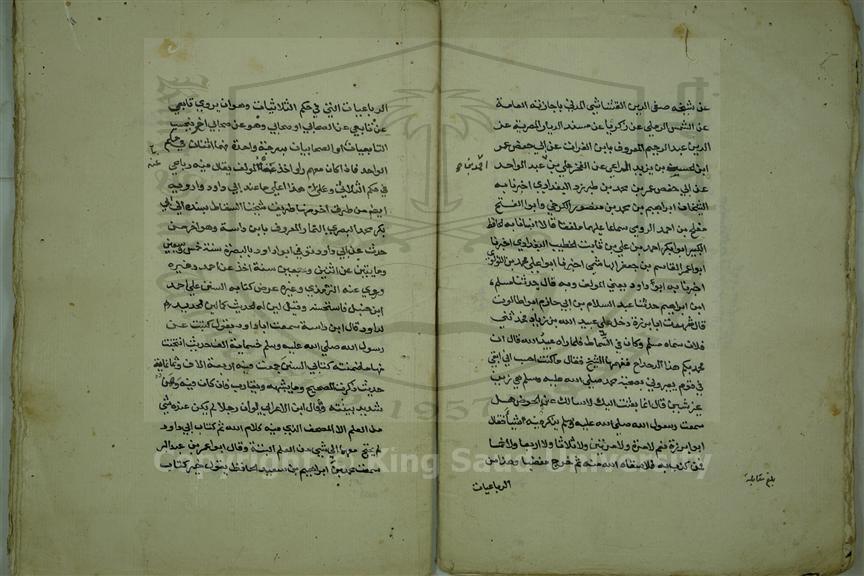 عن شيخه صفي الدين القشاشي المدني باجازته العامة
عن الشمس الرملي عن زكريا عن مسند الديار المصرية عز
الدين عبد الرحيم المعروف بابن الفرات عن ابي حفص عمر
ابن الحسن بن يزيد المراغي عن الفخر علي بن عبد الواحد
احمد بن
عن ابي حفص عمر بن محمد بن طبرزد البغدادي اخبرنا به
الشيخان ابراهيم بن محمد بن منصور الكرخي وابوا الفتح
مفلح بن احمد الرومي سماعا عليهما ملفقا قالا انبانا به الحافظ
الكبير ابو ابكر احمد بن علي بن ثابت الخطيب البغدادي اخبرنا
ابو اعمر القاسم بن جعفر الهاشمي اخبرنا ابوا علي محمد بن اللؤلؤي
اخبرنا به ابوا داود يعني المؤلف وبه قال حدثنا مسلم
ابن ابراهيم حدثنا عبد السلام بن ابي حازم ابوا طالوت
قال شهدت ابا برزة دخل علي عبيد الله بن زياد فحدثني
فلان سماه مسلم وكان في السماط فلما راه عبيد الله قال ان
محمديكم هذا الدحداح ففهمها الشيخ فقال ما كنت احسب اني ابقي
في قوم يعيروني بصحبة محمد صلي الله عليه وسلم
غير شين قال انما بعثت اليك لاسالك عن الحوض هل
سمعت رسول الله صلي الله عليه وسلم يذكر فيه شيأ فقال
ابوا برزة نعم لا مرة ولا مرتين ولا ثلاثا ولا اربعا ولا خمسا
فمن كذب به فلا سقاه الله منه ثم خرج مغضبا
بلغ مقابلة
الرباعيات
الرباعيات التي في حكم الثلاثيات وهو ان يروي تابعي
عن تابعي عن الصحابي او صحابي وهو عن صحابي اخر فيحسب
التابعيان او الصحابيان بدرجة واحدة فهما اثنان في حكم
الواحد فاذا كان معهم راو اخذ عنه المؤلف يقال فيه رباعي
عنه
في حكم الثلاثي وعلي هذا اعلي ما عند ابي داود وارويه
ايضا من طرق اخري منها طريق شيخنا السقاط بسنده الي ابي
بكر محمد البصري التمار المعروف بابن داسة وهو اخر من
حدث عن ابي داود توفي ابو داود بالبصرة سنة خمس وسبعين
ومايتين عن اثنين وسبعين سنة اخذ عن احمد وغيره
وروي عنه الترمذي وغيره عرض كتابه السنن علي احمد
ابن حنبل فاستحسنه وقيل لين له الحديث كما لين الحديد
لداود قال ابن داسة سمعت ابا داود يقول كتبت عن
رسول الله صلي الله عليه وسلم خمسماية الف حديث انتخبت
منها ما ضمنته كتابي السنن جمعت فيه اربعة الاف وثمانماية
حديث ذكرت الصحيح وما يشبهه وما يقاربه فان كان فيه وهن
شديد بينته وقال ابن الاعرابي لو ان رجلا لم يكن عنده شي
من العلم الا المصحف الذي فيه كلام الله ثم كتاب ابي داود
لم يحتج معهما الي شي من العلم البتة وقال ابوا عمر بن عبد البر
سمعت محمد بن ابراهيم بن سعيد الحافظ يقول خير كتاب
Copyright © King Saud University
1957